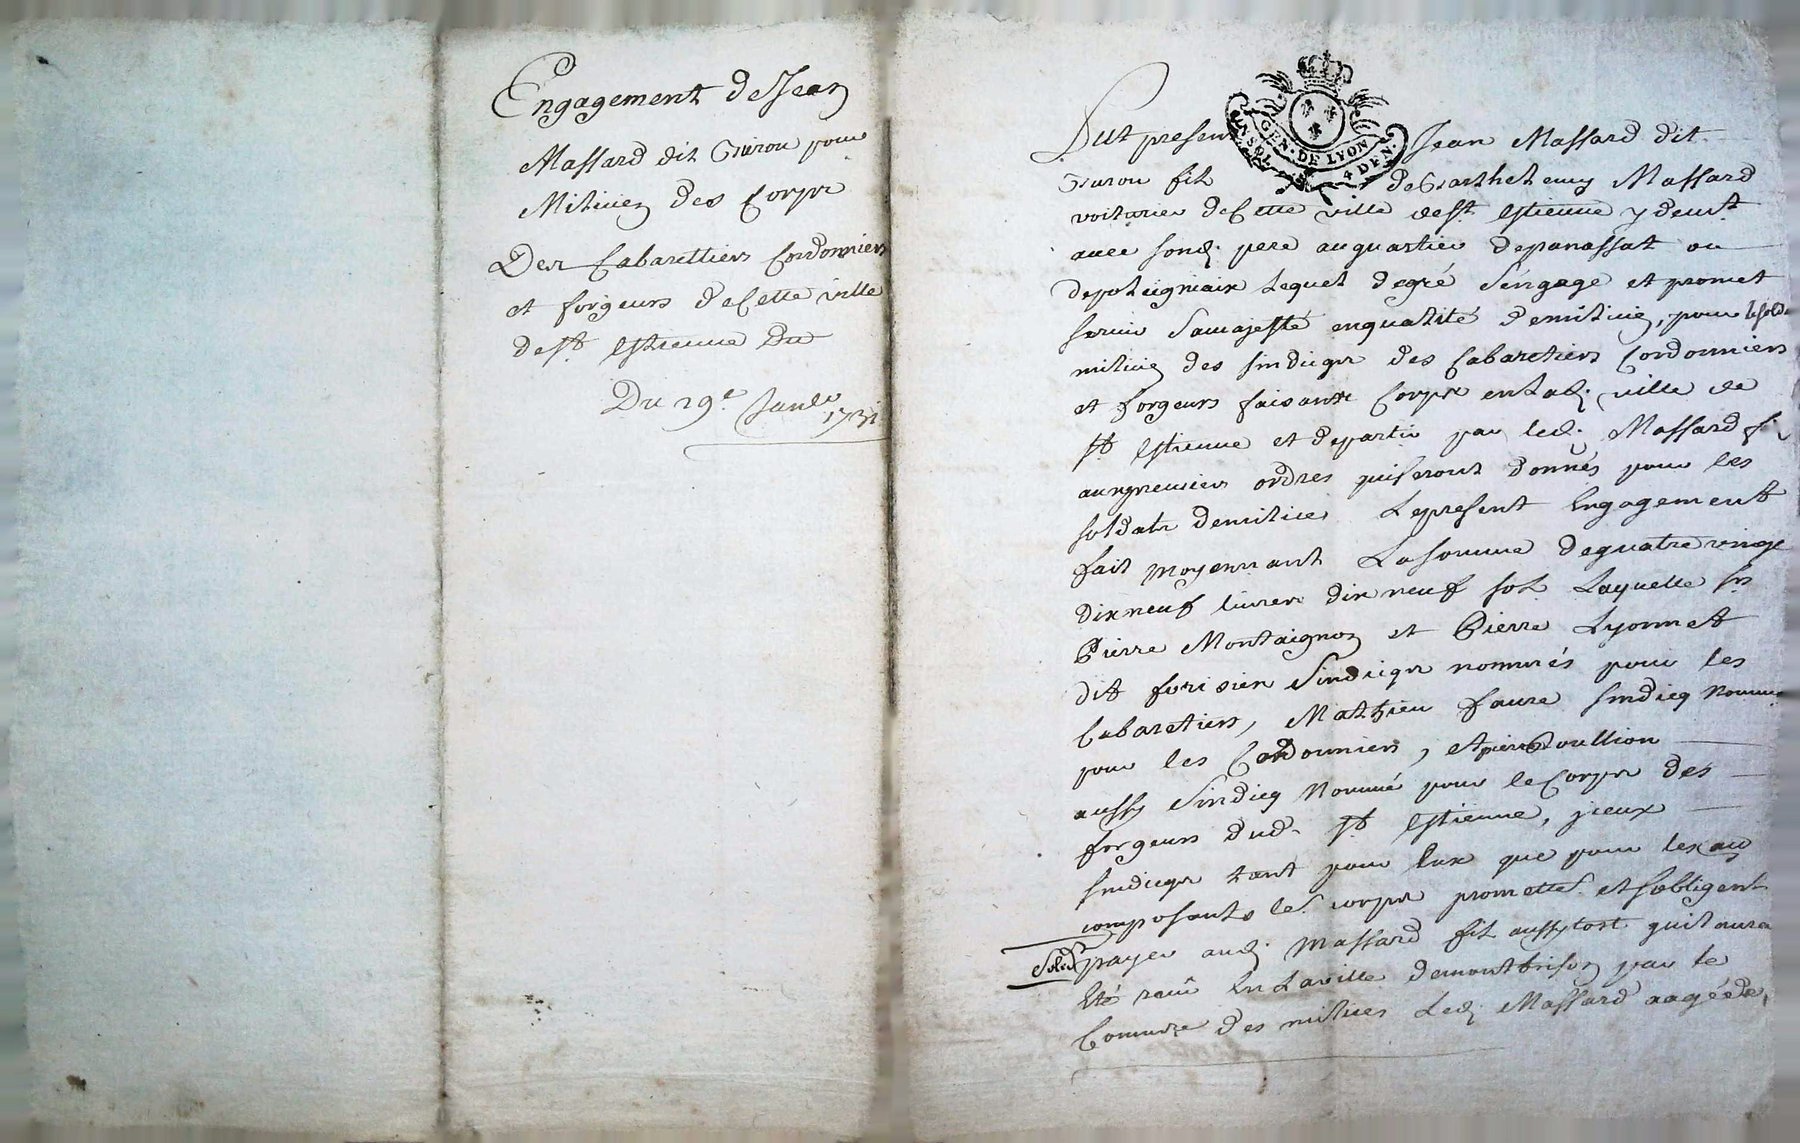 Engagement de Jean
Massard dit Giirou pour
Milicien des Corps
Des Cabarettiers Cordonniers
et forgeurs de Cette ville
de st. Estienne Du
Du 29e Janv.
1731
GEN. DE LYON
UN SOL. 4 DEN.
Fut present Jean Massard dit
fils de Barthelemy Massard
voiturier de Cette ville de st. Estienne y demt.
avec sond. pere au quartier de panassat ou
de poleigniaix Lequel degré S'engage et promet
servir Sa majesté en qualité de milicien, pour le sold.
milicien des sindicqs des Cabaretiers Cordonniers
et forgeurs faisants Corps en lad. ville de
st. Estienne et departir par led. Massard fils
aux premiers ordres qui seront donnés pour les
soldats de milices Le present Engagement
fait moyennant La somme de quatre vingt
dix neuf livres dix neuf sols Laquelle srs
Pierre Montaignon et Pierre Lyonnet
dit forisien Sindicqs nommés pour les
Cabaretiers, Mathieu faure sindicq Nommé
pour les Cordonniers, et pierre
aussy Sindicq Nommé pour le Corps des
forgeurs dud. st. Estienne, yceux
sindicqs tant pour Eux que pour les au
composants les corps promettes et s'obligent
Solid. payer aud. Massard fils aussytost qu'il aura
Eté receu En La ville de montbrison par le
Commre des milices Led. Massard aagé de